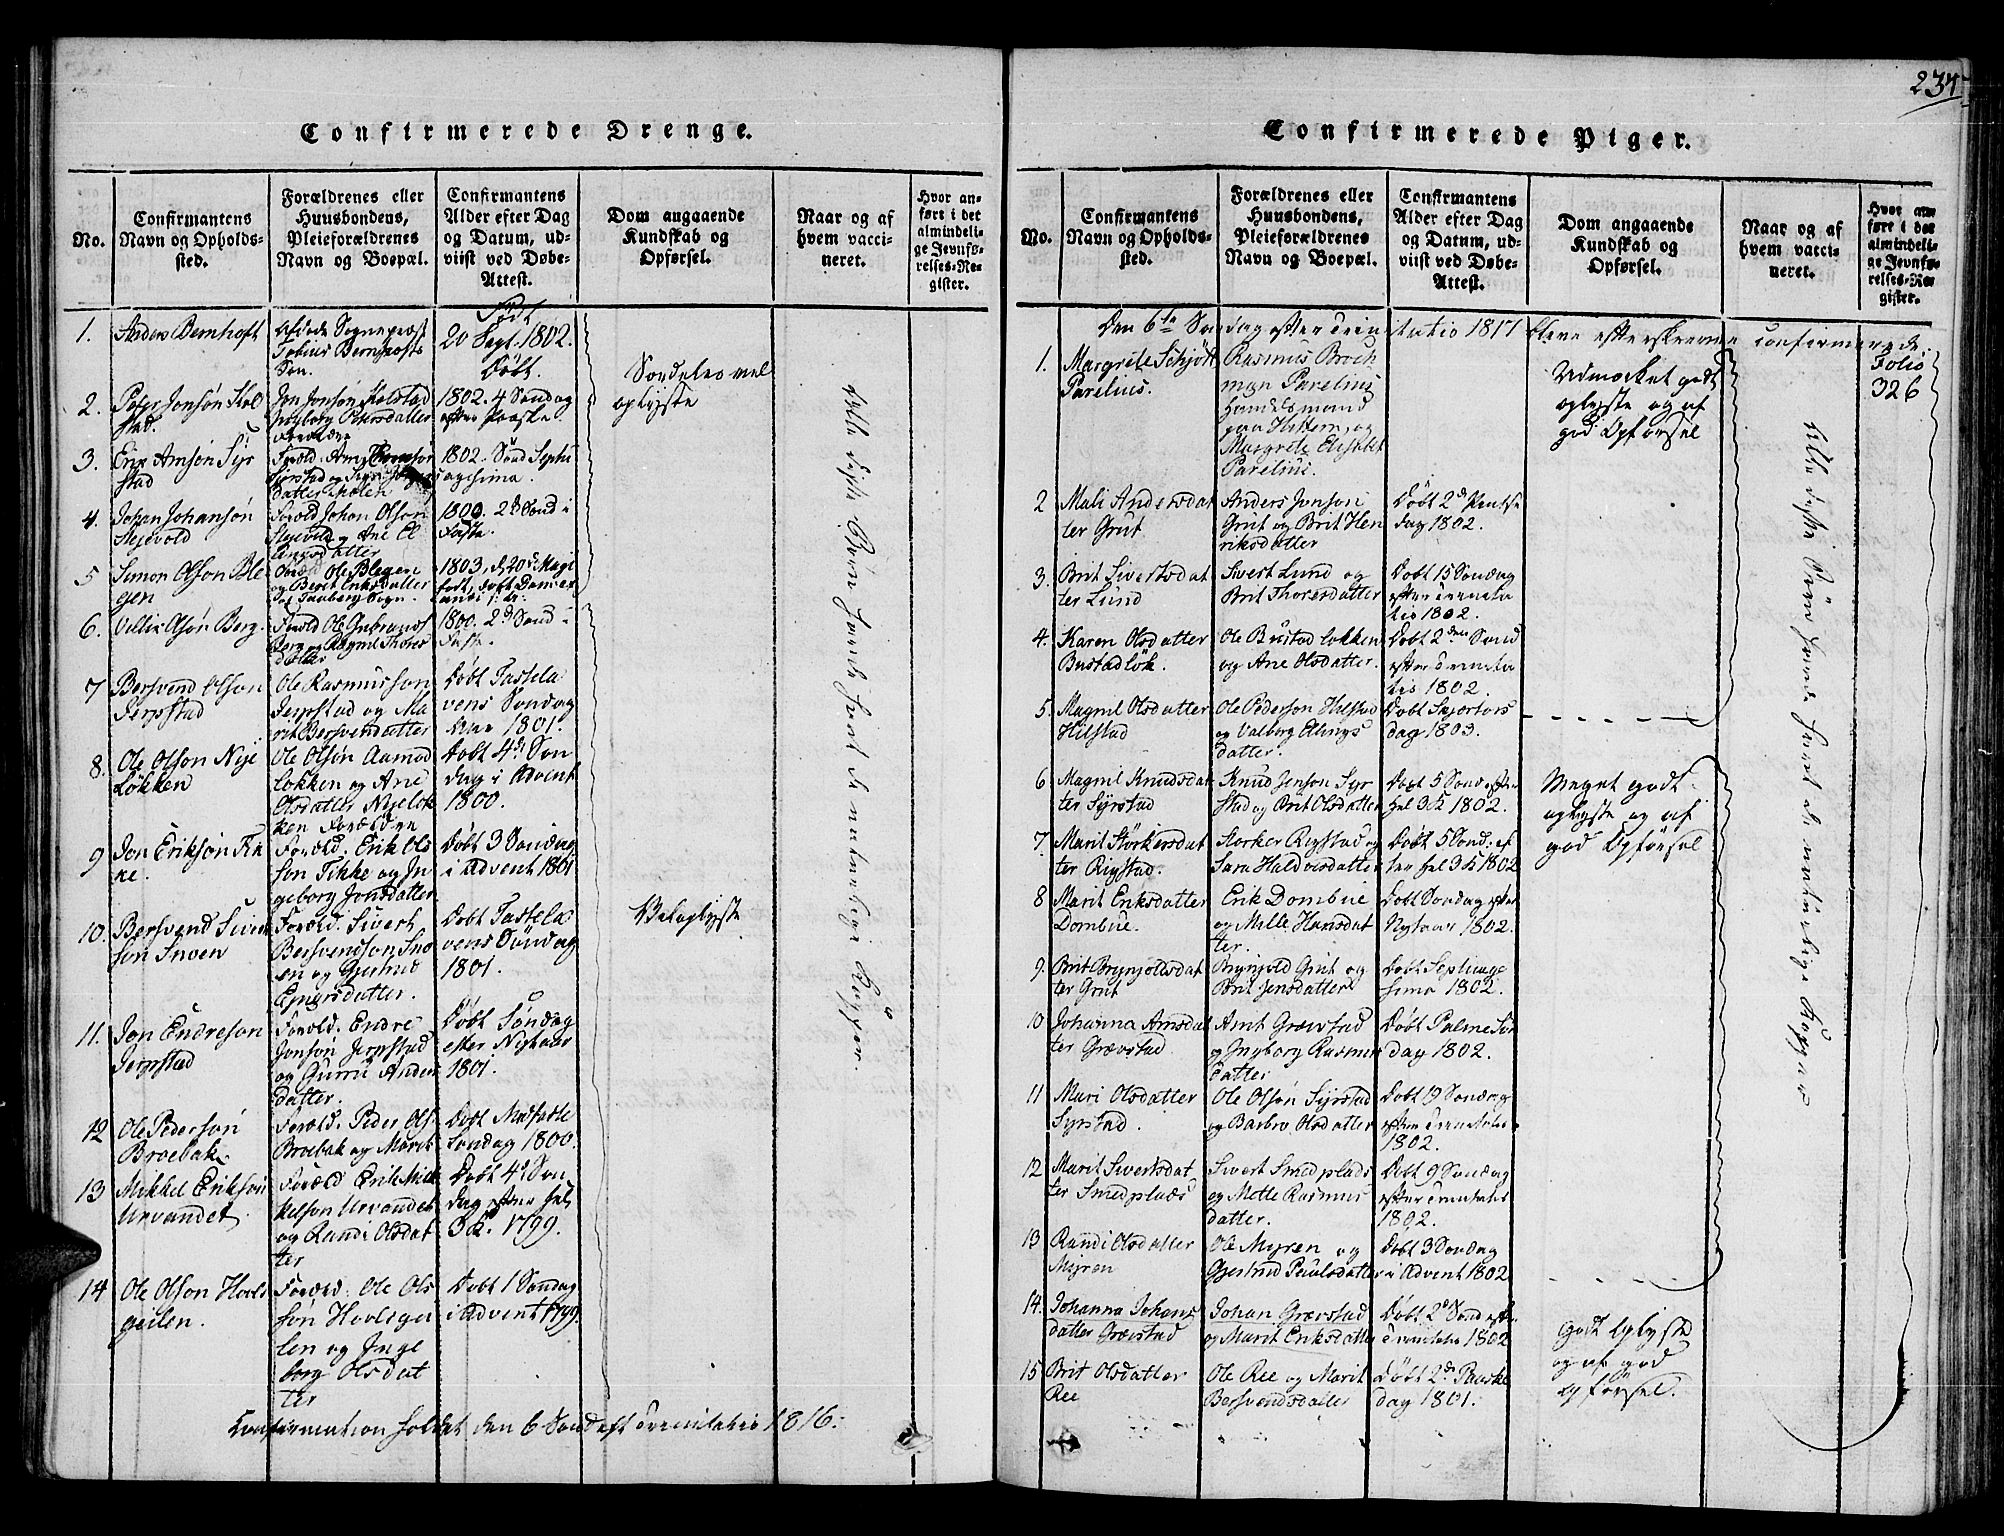 234
Confirmerede Drenge.
No.
Confirmantens
Navn og Opholds-
sted.
Forældrenes eller
Huusbondens,
Pleieforældrenes
Navn og Boepæl.
Confirmantens
Alder efter Dag
og Datum, ud-
viist ved Døbe-
Attest.
Dom angaaende
Kundskab og
Opførsel.
Naar og af
hvem vacci-
neret.
Hvor an-
ført i det
almindeli-
ge Jevnfø-
relses-Re-
gister.
1.
Anders Bernhoft
Afdøde Sognepræst
Tobias Bernhofts
Søn.
Født
20 Sept. 1802.
Døbt.
Særdeles vel
oplyste
2.
Peter Jonsøn Kol
stad.
Jon Jonsøn Kolstad
Ingborg Petersdatter
Forældre
1802. 4 Søndag
efter Paaske
3.
Erik Arnsøn Syr
stad
1802. Sønd Septu
agesima.
4.
Johan Johansøn
Foræld. Johan Olsøn
datter
1800. 2d Sønd i
Faste.
5
Simon Olsøn Ble
gen
Ole Blegen
og Berit Eriksdatter
1803, d. 20de Maji
6.
Olsøn Berg.
Foræld Ole Gulbrands
Berg og Ragnil Thores
datter
1800. 2d Sønd i
Faste.
7
Bersvend Olsøn
Jerpstad
Ole Rasmussøn
Jerpstad og Ma
rit Bersvendatter
Døbt Fastela
vens Søndag
1801.
8.
Ole Olsøn Nye
Løkken
Ole Olsøn Aamod
Løkken og Ane
Olsdatter Nyeløk
ken Forældre
Døbt 4d Søn
dag i Advent
1800.
9
Jon Eriksøn Fik
ke.
Foræld. Erik Ols
søn Fikke og In
geborg Jonsdatter
Døbt 3 Søndag
i Advent 1801
10.
Bersvend Sivert
søn Snoen
Foræld. Sivert
Bersvendsøn Sno
en og Gjertrud
Ejnersdatter.
Døbt Fastela
vens Søndag
1801.
Veloplyste
11.
Jon Endresøn
Jerpstad
Foræld. Endre
Jonsøn Jerpstad
og Guru Anders
datter.
Døbt Søndag
efter Nytaar
1801.
12
Ole Pedersøn
Broebak
Foræld. Peder Ols.
Broebak og Marit
Døbt Midfaste
Søndag 1800.
13
Mikkel Eriksøn
Urvandet
Foræld Erik Mik
kelsøn Urvandet
og Randi Olsdat
ter
Døbt 4d Søn
dag efter Hel
3 K. 1799.
14
Ole Olsøn Hovls
geilen.
Foræld: Ole Ols
søn Hovlsgei
len og Inge
borg Olsdat
ter
Døbt 1 Søndag
i Advent 1799.
Alle disse Børn havde havt de naturlige Kopper.
Confirmation holdet den 6 Sønd eft Trenitatis 1816.
Confirmerede Piger.
No.
Confirmantens
Navn og Opholds-
sted.
Forældrenes eller
Huusbondens,
Pleieforældrenes
Navn og Boepæl.
Confirmantens
Alder efter Dag
og Datum, ud-
viist ved Døbe-
Attest.
Dom angaaende
Kundskab og
Opførsel.
Naar og af
hvem vacci-
neret.
Hvor an-
ført i det
almindeli-
ge Jevnfø-
relses-Re-
gister.
Den 6te Søndag efter Trinitatis 1817 bleve efterskrevne confirmerede.
1.
Margrete Schjøtt
Parelius.
Rasmus Broch
man Parelius
Handelsmand
paa Hittern, og
Margrete Elisabet
Parelius.
Udmærket godt
oplyste og af
god Opførsel
Folio
326
2
Mali Andersdat
ter Grut
Anders Jonsøn
Grut og Brit Hen
riksdatter
Døbt 2d Pintse
dag 1802.
3.
Brit Sivertsdat
ter Lund
Sivert Lund og
Brit Thoresdatter
Døbt 15 Søndag
efter Trenita
tis 1802.
4.
Karen Olsdatter
Bustadløk.
Ole Bustad løkken
og Ane Olsdatter.
Døbt 2den Sønd
efter Trenita
tis 1802.
5.
Magnil Olsdatter
Hilstad
Ole Pedersøn Hilstad
og Valborg Ellings
datter.
Døbt Skjærtors
dag 1803.
6
Magnil Knudsdat
ter Syrstad
Knud Jensøn Syr
stad og Brit Olsdatter
Døbt 5 Sønd efter
Hel 3 K 1802.
Meget godt
oplyste og af
god Opførsel
7.
Marit Størkersdat
ter Rigstad.
Størker Rigstad og
Sara Haldorsdatter
Døbt 5 Sønd: ef
ter Hel 3 K 1802
8
Marit Eriksdatter
Dombue.
Erik Dombue
og Mille Hansdat
ter.
Døbt Søndag efter
Nytaar 1802.
9.
Brit Brynjolsdat
ter Grut
Brynjold Grut og
Brit Jensdatter
Døbt Septuage
sima 1802.
10
Johanna Arnsdat
ter Grævstad
Arnt Grævstad
og Ingborg Rasmus
datter
Døbt Palme Søn
dag 1802.
11
Mari Olsdatter
Syrstad.
Ole Olsøn Syrstad
og Barbro Olsdatter
Døbt 19 Søndag
efter Trenitatis
1802.
12
Marit Sivertsdat
ter Smedplads
Sivert Smedplads
og Mette Rasmus
datter.
Døbt 9 Søndag
efter Trenitatis
1802.
13
Randi Olsdatter
Myren
Ole Myren og
Gjertrud Paulsdatter
Døbt 3 Søndag
i Advent 1802
14.
Johanna Johans
datter Grævstad
Johan Grævstad
og Marit Eriksdatter
Døbt 2d Sønd eft.
Trenitatis 1802
Godt oplyste
og af god
Opførsel.
15
Brit Olsdatter
Ree
Ole Ree og Marit
Bersvendsdatter
Døbt 2d Paaske
dag 1801.
Alle disse Børn havde havt de naturlige Kopper